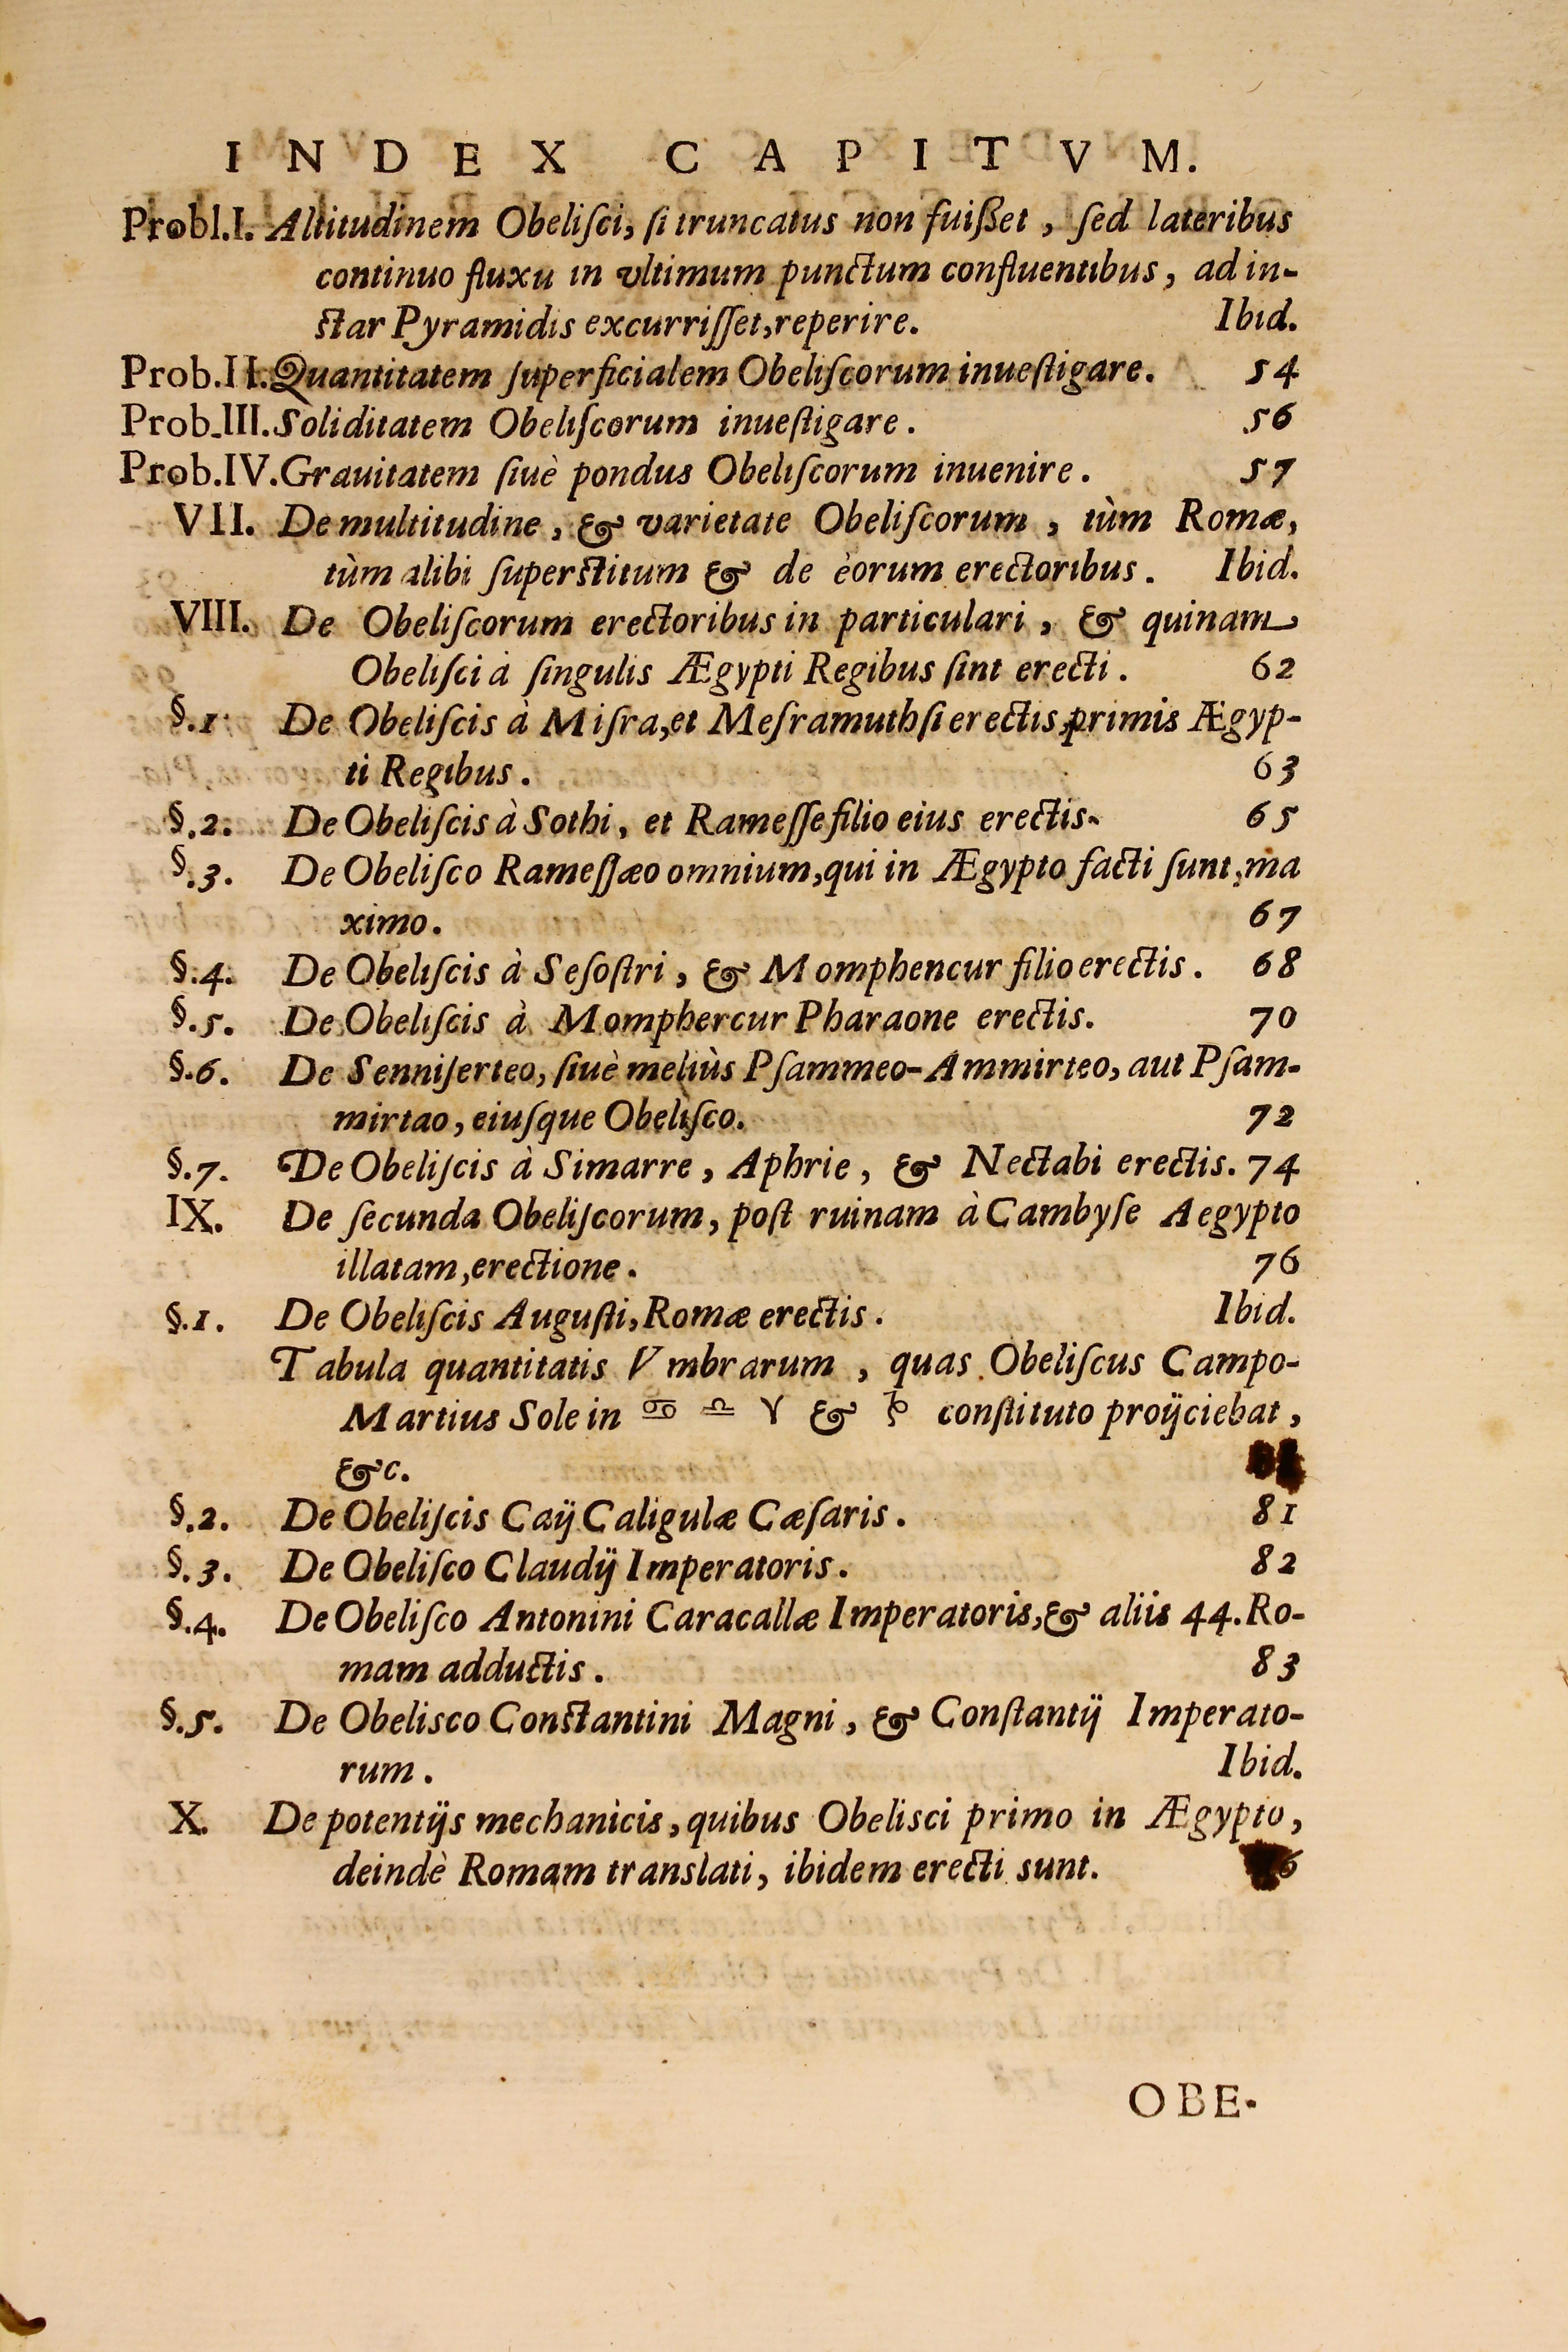 INDEX CAPITVM.
Probl.I. Altitudinem Obeliſci, ſi truncatus non fuiſſet, ſed lateribus
continuo fluxu in vltimum punctum confluentibus, ad in-
ſtar Pyramidis excurriſſet, reperire. Ibid.
Prob.II. Quantitatem ſuperficialem Obeliſcorum inueſtigare. 54
Prob.III. Soliditatem Obeliſcorum inueſtigare. 56
Prob.IV. Grauitatem ſiuè pondus Obeliſcorum inuenire. 57
VII. De multitudine, & varietate Obeliſcorum, tùm Romæ,
tùm alibi ſuperſtitum & de èorum erectoribus. Ibid.
VIII. De Obeliſcorum erectoribus in particulari, & quinam
Obeliſci à ſingulis Ægypti Regibus ſint erecti. 62
§.1. De Obeliſcis à Miſra, et Meſramuthſi erectis, primis Ægyp-
ti Regibus. 63
§.2. De Obeliſcis à Sothi, et Rameſſe filio eius erectis. 65
§.3. De Obeliſco Rameſſæo omnium, qui in Ægypto facti ſunt, ma
ximo. 67
§.4. De Obeliſcis à Seſoſtri, & Momphencur filio erectis. 68
§.5. De Obeliſcis à Momphercur Pharaone erectis. 70
§.6. De Senniſerteo, ſiuè meliùs Pſammeo-Ammirteo, aut Pſam-
mirtao, eiuſque Obeliſco. 72
§.7. De Obeliſcis à Simarre, Aphrie, & Nectabi erectis. 74
IX. De ſecunda Obeliſcorum, poſt ruinam à Cambyſe Aegypto
illatam, erectione. 76
§.1. De Obeliſcis Auguſti, Romæ erectis. Ibid.
Tabula quantitatis Vmbrarum, quas Obeliſcus Campo-
Martius Sole in ♋ ♎ ♈ & ♑ conſtituto proijciebat,
&c.
§.2. De Obeliſcis Caij Caligulæ Cæſaris. 81
§.3. De Obeliſco Claudij Imperatoris. 82
§.4. De Obeliſco Antonini Caracallæ Imperatoris, & aliis 44. Ro-
mam adductis. 83
§.5. De Obelisco Conſtantini Magni, & Conſtantij Imperato-
rum. Ibid.
X. De potentijs mechanicis, quibus Obelisci primo in Ægypto,
deindè Romam translati, ibidem erecti sunt.
OBE-